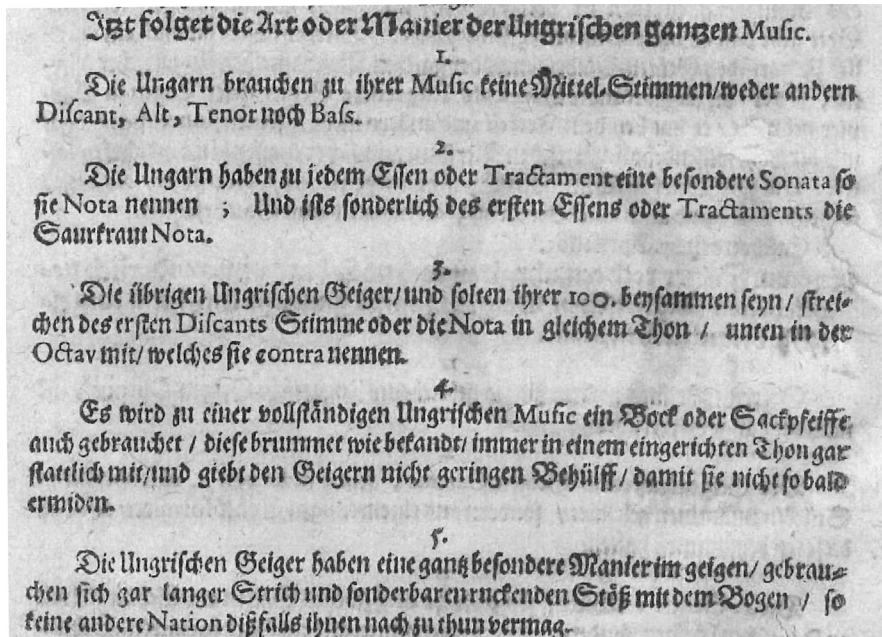 Jtzt folget die Art oder Manier der Ungrischen gantzen Music.
1.
Die Ungarn brauchen zu ihrer Music keine Mittel-Stimmen/weder andern
Discant, Alt, Tenor noch Bass.
2.
Die Ungarn haben zu jedem Essen oder Tractament eine besondere Sonata so
sie Nota nennen ; Und ists sonderlich des ersten Essens oder Tractaments die
Saurkraut Nota.
3.
Die übrigen Ungrischen Geiger/und solten ihrer 100. beysammen seyn / strei-
chen des ersten Discants Stimme oder die Nota in gleichem Thon / unten in der
Octav mit/ welches sie contra nennen.
4.
Es wird zu einer vollständigen Ungrischen Music ein Bock oder Sackpfeiffe
auch gebrauchet / diese brummet wie bekandt/ immer in einem eingerichten Thon gar
stattlich mit/und giebt den Geigern nicht geringen Behülff/ damit sie nicht so bald
ermiden.
5.
Die Ungrischen Geiger haben eine gantz besondere Manier im geigen/ gebrau-
chen sich gar langer Strich und sonderbaren ruckenden Stöß mit dem Bogen / so
keine andere Nation dißfalls ihnen nach zu thun vermag.